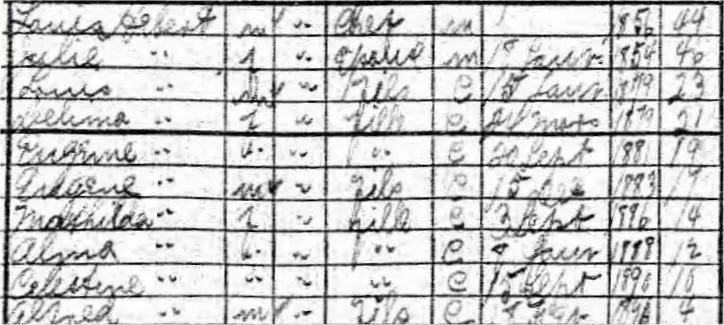 Louis Hebert m " Chef m 1856 44
Julie " f " Epouse m 1854 46
Louis " m " Fils C 15 Janv 23
Delima " f " fille C 24 mars 1879 21
" " " C 20 Sept 1881 19
Eugene " m " Fils C 15 Dec 1883 17
Mathilda " f " fille C 3 Sept 14
Alma " " " " C 8 Janv 1888 12
Celestine " " " " C 15 Sept 1890 10
Alfred " m " Fils C 1896 4